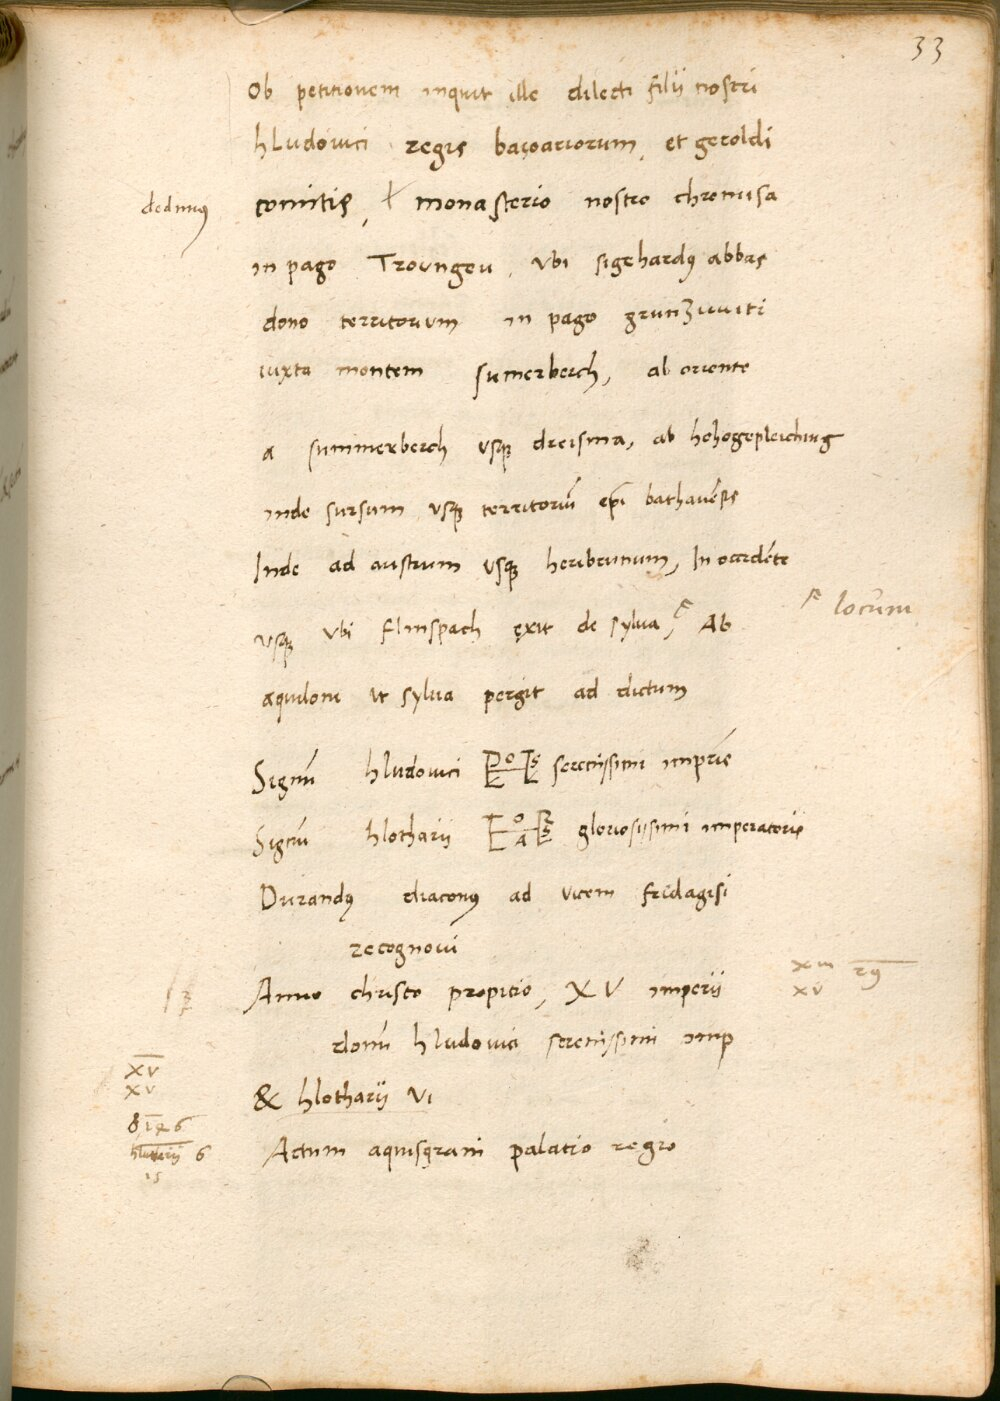 33
Ob petitionem inquit ille dilecti filii nostri
hludouuici regis baioariorum, et geroldi
dedimus
comitis, ł monasterio nostro chremisa
in pago Troungou, ubi sigehardꝰ abbas
dono territorium in pago grunzuuiti
iuxta montem sumerberch, ab oriente
a summerberch usqꝫ dreisma, ab hohogepleiching
inde sursum usqꝫ territoriū ep̄i bathauēsis
Inde ad austrum usqꝫ heribrunum, In occidēte
usqꝫ ubi flinspach exit de sylua, Ab
locum
aquiloni ut sylua pergit ad dictum
Signū hludouici serenissimi imp̄ris
Signū hlotharii gloriosissimi imperatoris
Durandꝰ diaconꝰ ad vicem fridagisi
recognoui
Anno christo propitio, XV imperii
XIII
XV
domū hludouici serenissimi imp
XV
XV
& hlotharii VI
826
hlotharii 6
15
Actum aquisgrani palatio regio